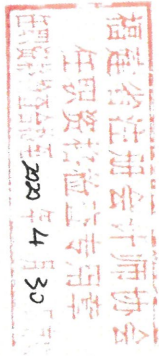 福建省注册会计师协会
任职资格检查专用章
2020年4月30日